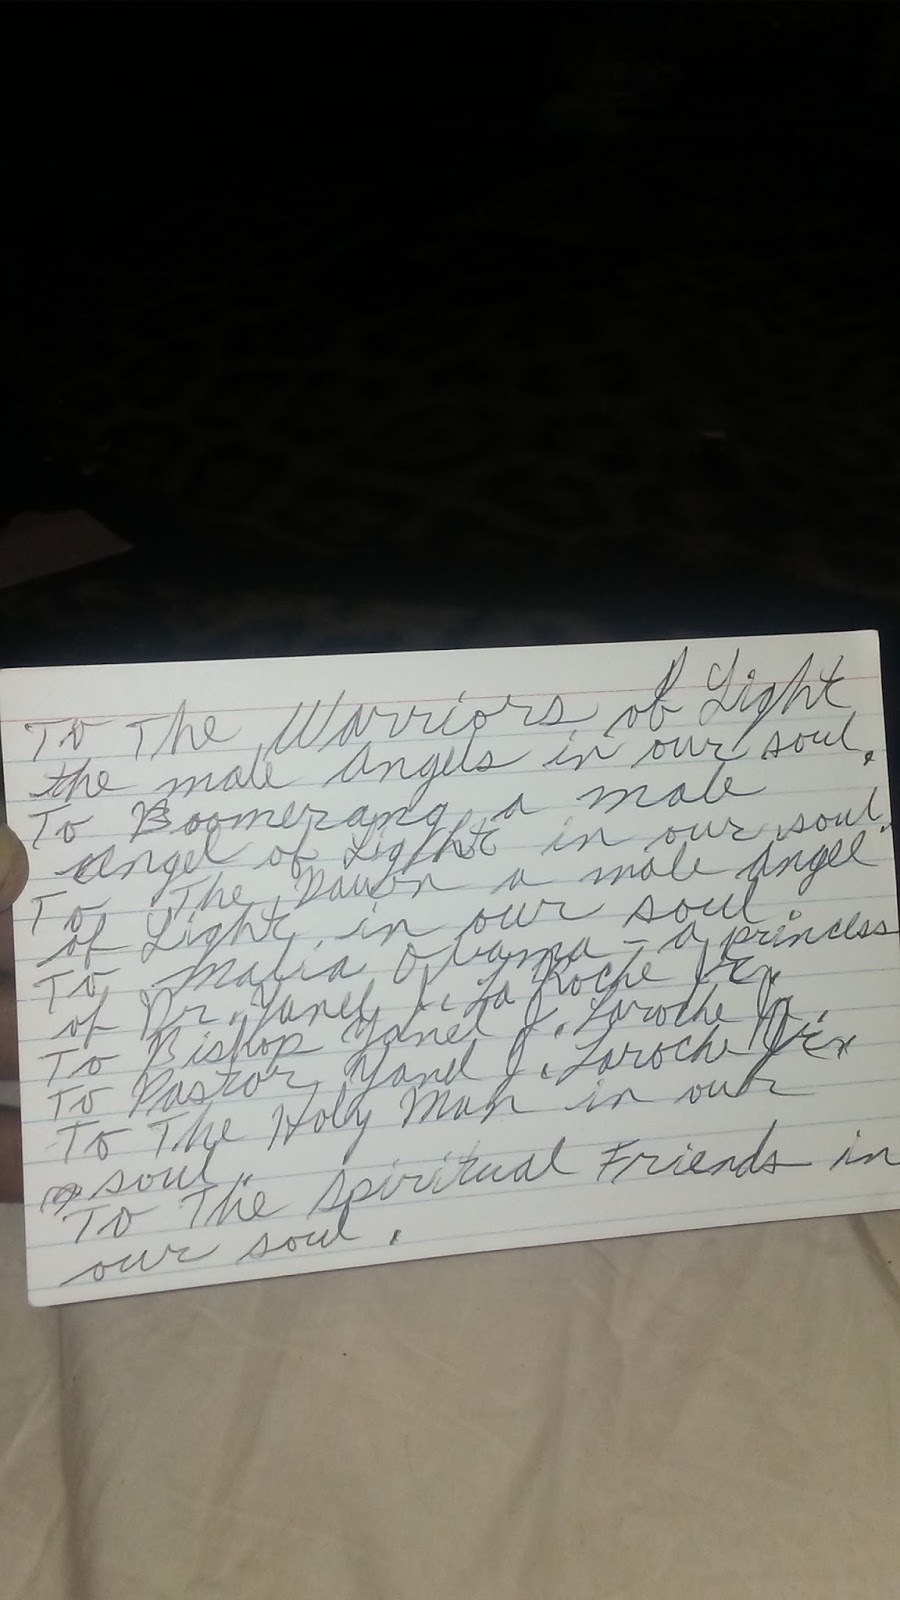 To The Warriors of Light
the male Angels in our soul.
To Boomerang a male
Angel of Light in our soul.
To The Dawn a male Angel
of Light in our soul
To Malia Obama - a princess
of Dr. Yanel J. LaRoche Jr.
To Bishop Yanel J. Laroche Jr.
To Pastor Yanel J. Laroche Jr.
To The Holy Man in our
soul.
To The Spiritual Friends in
our soul.